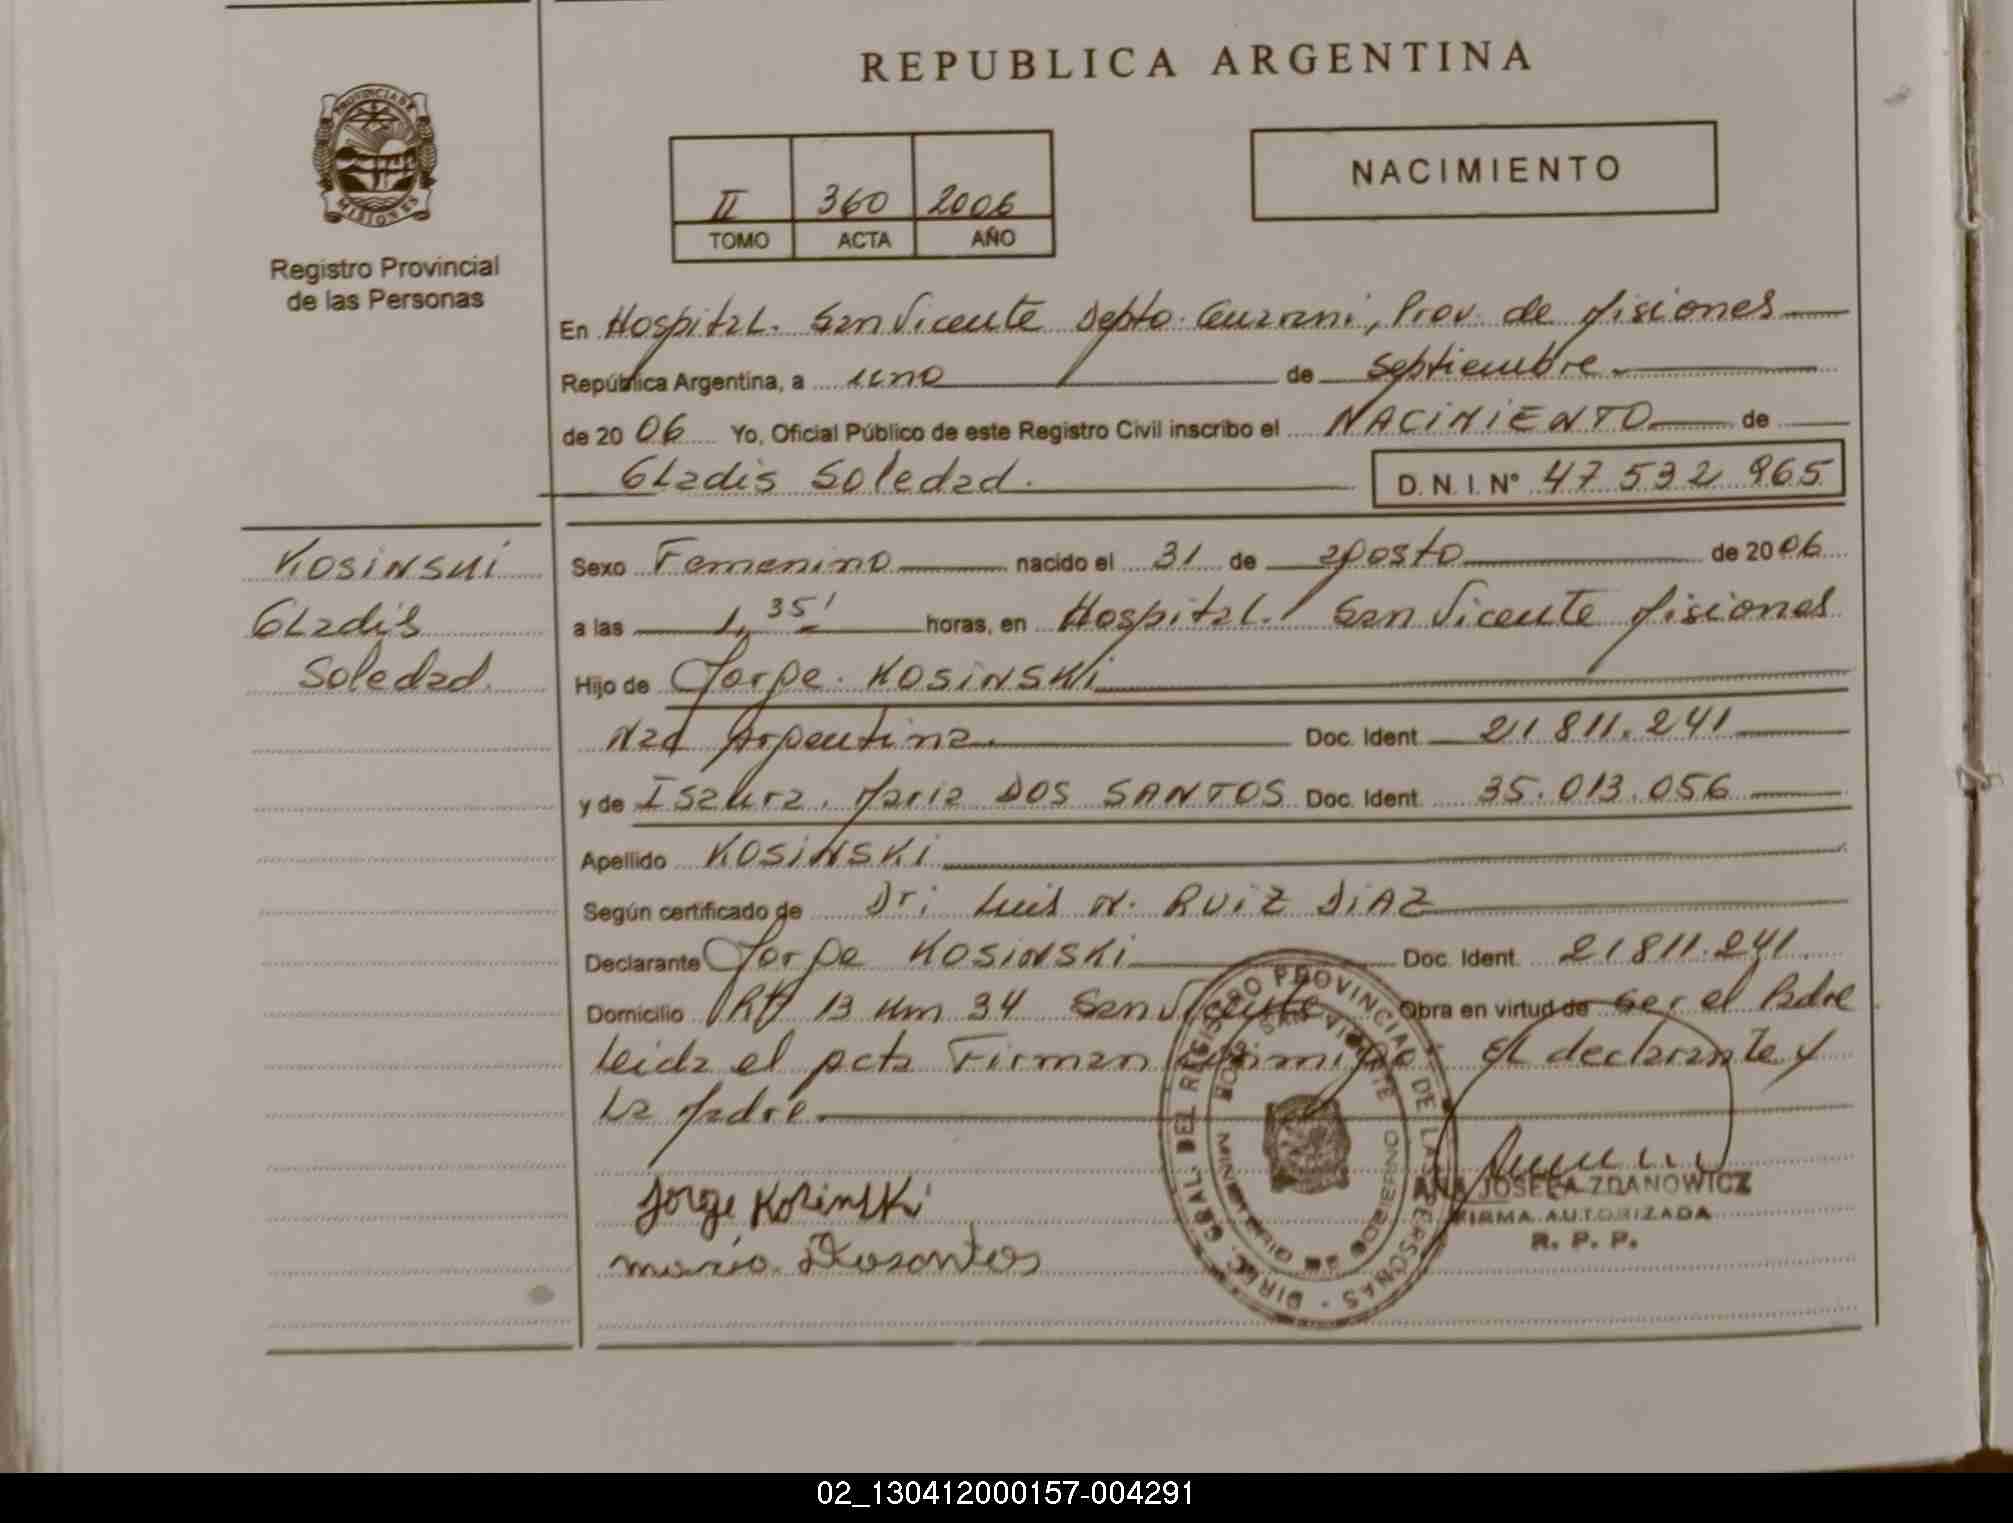 REPUBLICA ARGENTINA
PROVINCIA DE
MISIONES
Registro Provincial
de las Personas
II 360 2006
TOMO ACTA AÑO
NACIMIENTO
En Hospital. San Vicente Depto. Guarani, Prov. de Misiones
República Argentina, a uno de Septiembre
de 2006 Yo, Oficial Público de este Registro Civil inscribo el NACIMIENTO de
Gladis Soledad. D. N. I. Nº 47 532 965
Kosinski
Gladis
Soledad.
Sexo Femenino nacido el 31 de agosto de 2006
a las 1,35' horas, en Hospital. San Vicente Misiones
Hijo de Jorge. KOSINSKI
Nac Argentina. Doc. Ident. 21 811.241
y de Isaura, Maria DOS SANTOS Doc. Ident. 35.013.056
Apellido KOSINSKI
Según certificado de Dr; Luis N. RUIZ DIAZ
Declarante Jorge KOSINSKI Doc. Ident. 21811.241
Domicilio 13 Km 34 San Vicente Obra en virtud de Ser el Padre
Leida el acta Firman conmigo El declarante y
La Madre.
Jorge Kosinski
maria Dosantos
DIREC. GRAL. DEL REGISTRO PROVINCIAL DE LAS PERSONAS
SAN VICENTE
DE GOBIERNO
ANA JOSEFA ZDANOWICZ
FIRMA AUTORIZADA
R. P. P.
02_130412000157-004291